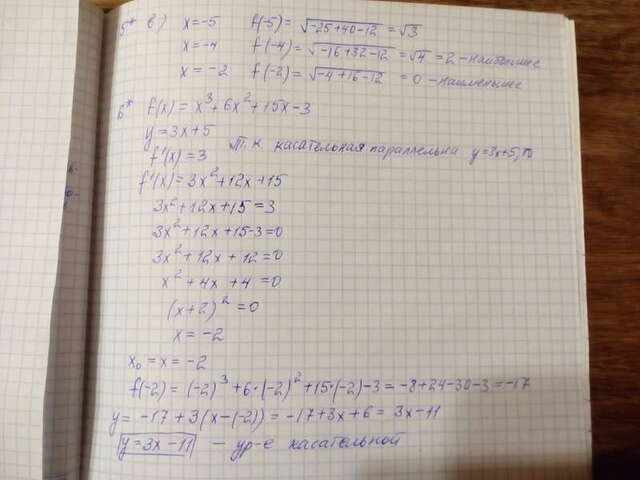 5* в) x=-5 f(-5) = √(-25+40-12) = √3
x=-4 f(-4) = √(-16+32-12) = √4 = 2 - наибольшее
x=-2 f(-2) = √(-4+16-12) = 0 - наименьшее
6* f(x) = x³+6x²+15x-3
y=3x+5
f'(x)=3 т.к касательная параллельна y=3x+5, то
f'(x)=3x²+12x+15
3x²+12x+15=3
3x²+12x+15-3=0
3x²+12x+12=0
x²+4x+4=0
(x+2)²=0
x=-2
x₀=x=-2
f(-2) = (-2)³+6·(-2)²+15·(-2)-3 = -8+24-30-3=-17
y= -17+3(x-(-2)) = -17+3x+6 = 3x-11
y=3x-11 - ур-е касательной